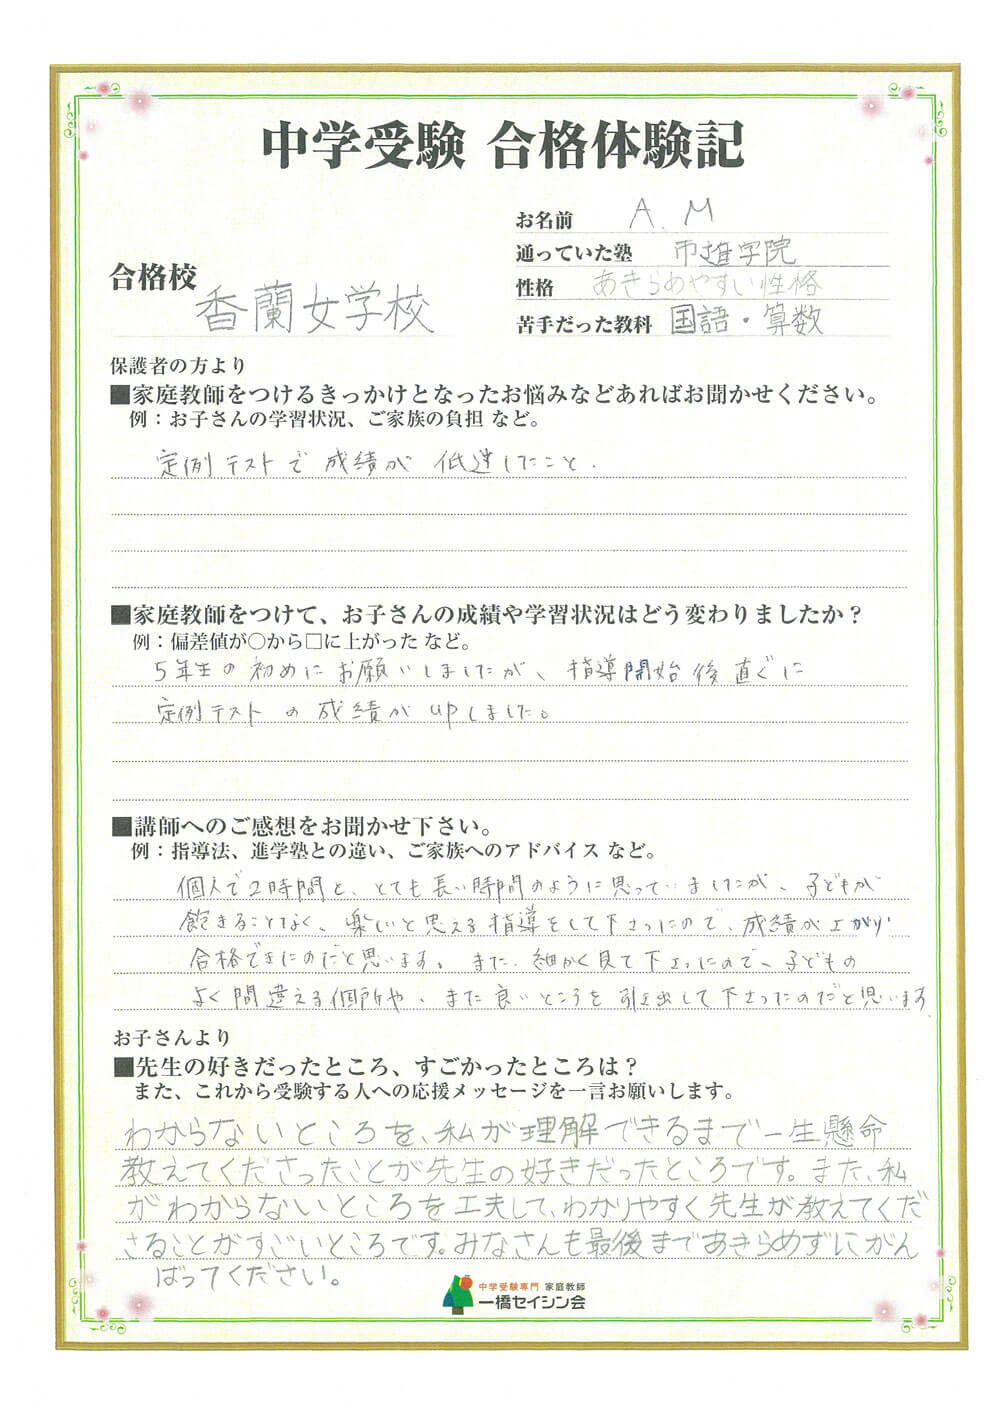 中学受験 合格体験記
お名前 A.M
通っていた塾 市進学院
合格校 香蘭女学校
性格 あきらめやすい性格
苦手だった教科 国語・算数
保護者の方より
■家庭教師をつけるきっかけとなったお悩みなどあればお聞かせください。
例：お子さんの学習状況、ご家族の負担 など。
定例テストで成績が 低迷したこと.
■家庭教師をつけて、お子さんの成績や学習状況はどう変わりましたか？
例：偏差値が○から□に上がった など。
5年生の初めにお願いしましたが、指導開始後直ぐに
定例テストの成績がupしました。
■講師へのご感想をお聞かせ下さい。
例：指導法、進学塾との違い、ご家族へのアドバイス など。
個人で2時間と、とても長い時間のように思っていましたが、子どもが
飽きることなく、楽しいと思える指導をして下さったので、成績が上がり
合格できたのだと思います。また、細かく見て下さったので、子どもの
よく間違える個所や、また良いところを引き出して下さったのだと思います.
お子さんより
■先生の好きだったところ、すごかったところは？
また、これから受験する人への応援メッセージを一言お願いします。
わからないところを、私が理解できるまで一生懸命
教えてくださったことが先生の好きだったところです。また、私
がわからないところを工夫して、わかりやすく先生が教えてくだ
さることがすごいところです。みなさんも最後まであきらめずにがん
ばってください。
中学受験専門 家庭教師
一橋セイシン会